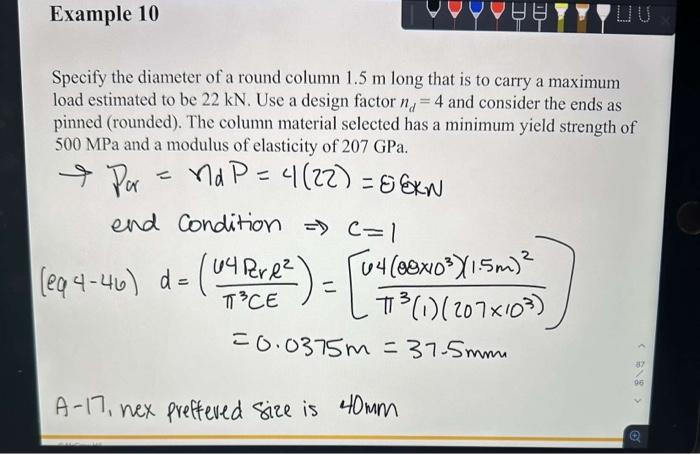 Example 10
Specify the diameter of a round column 1.5 m long that is to carry a maximum
load estimated to be 22 kN. Use a design factor n_d = 4 and consider the ends as
pinned (rounded). The column material selected has a minimum yield strength of
500 MPa and a modulus of elasticity of 207 GPa.
→ Pcr = ndP = 4(22) = 88kN
end condition ⇒ C=1
(eq 4-46) d = (64 Pcr l² / π³CE) = [64(88×10³)(1.5m)² / π³(1)(207×10³)]
= 0.0375m = 37.5mm
A-17, nex preffered size is 40mm
87
/
96